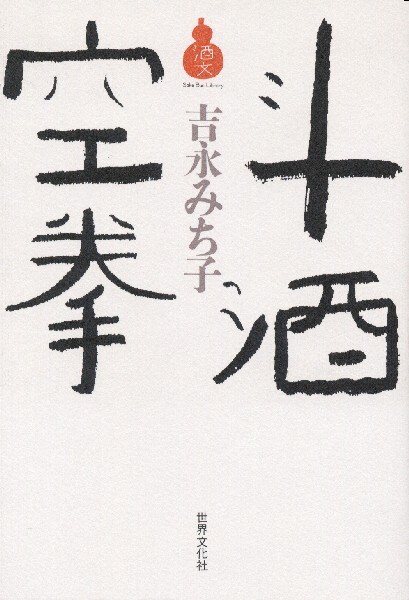 斗酒
空拳
酒文
Sake Bun Library
吉永みち子
世界文化社